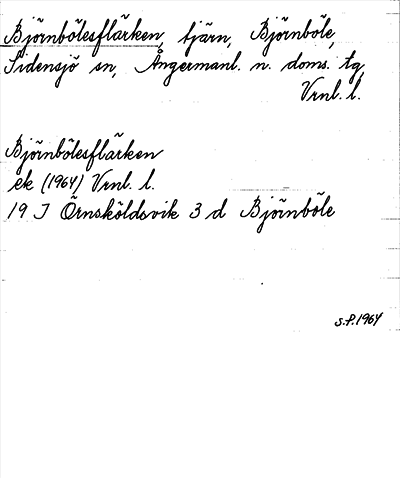 Björnbölesflärken, tjärn, Björnböle,
Sidensjö sn, Ångermanl. n. doms. tg,
Vrnl. l.
Björnbölesflärken
ek (1964) Vrnl. l.
19 I Örnsköldsvik 3 d Björnböle
S.P. 1964